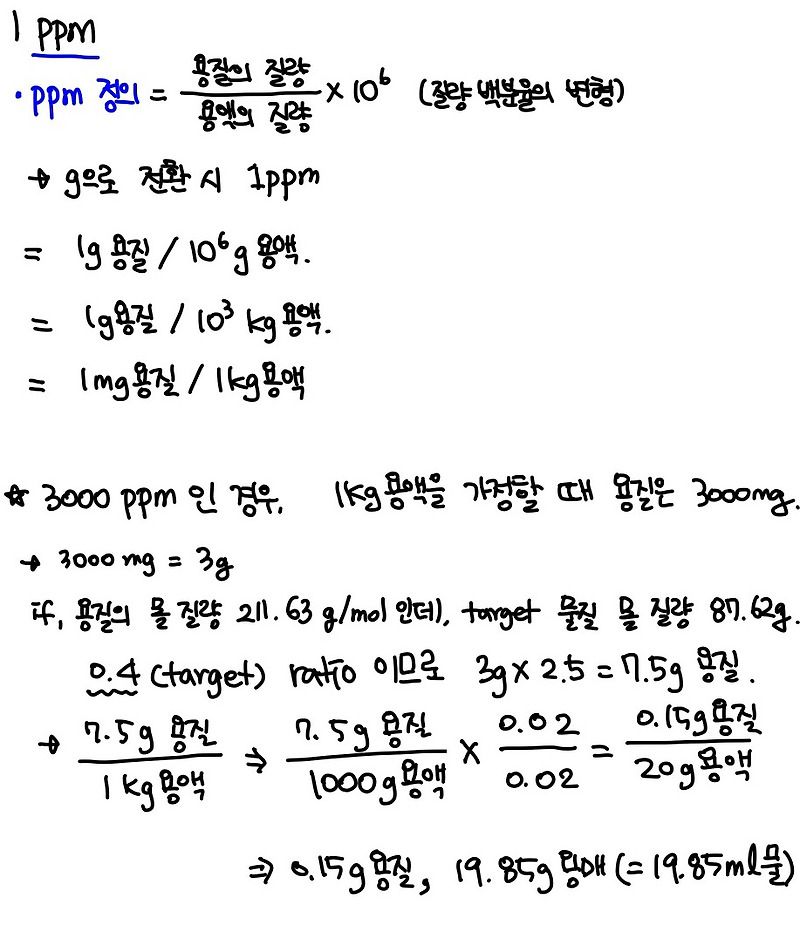 1 ppm
· ppm 정의 = 용질의 질량 / 용액의 질량 × 10⁶ (질량 백분율의 변형)
→ g으로 전환 시 1ppm
= 1g 용질 / 10⁶ g 용액.
= 1g용질 / 10³ kg 용액.
= 1mg용질 / 1kg용액
☆ 3000 ppm 인 경우, 1kg용액을 가정할 때 용질은 3000mg.
→ 3000 mg = 3g
if, 용질의 몰 질량 211.63 g/mol 인데, target 물질 몰 질량 87.62g.
0.4 (target) ratio 이므로 3g × 2.5 = 7.5g 용질.
→ 7.5g 용질 / 1kg용액 ⇒ 7.5g 용질 / 1000g용액 × 0.02 / 0.02 = 0.15g용질 / 20g용액
⇒ 0.15g용질, 19.85g 용매 (= 19.85ml물)